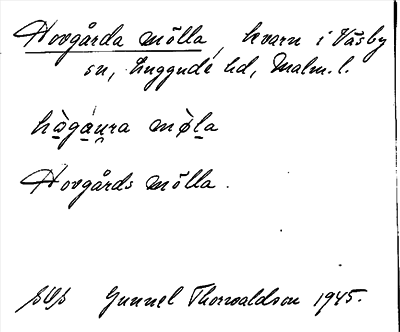 Hovgårda mölla, kvarn i Väsby
sn, Luggude hd, Malm. l.
hògau̯ra mø̀la
Hovgårds mölla.
Gunnel Thorwaldson 1945.